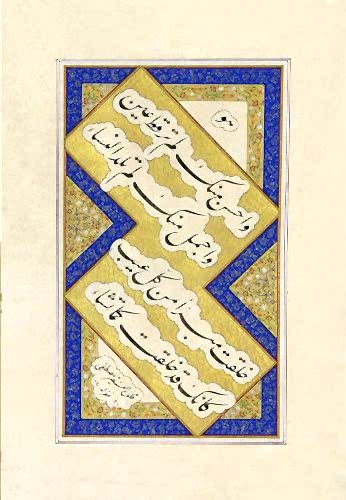 هو
واحسن منک لم تر قط عین
واجمل منک لم تلد النساء
خلقت مبرأ من کل عیب
کانک قد خلقت کما تشاء